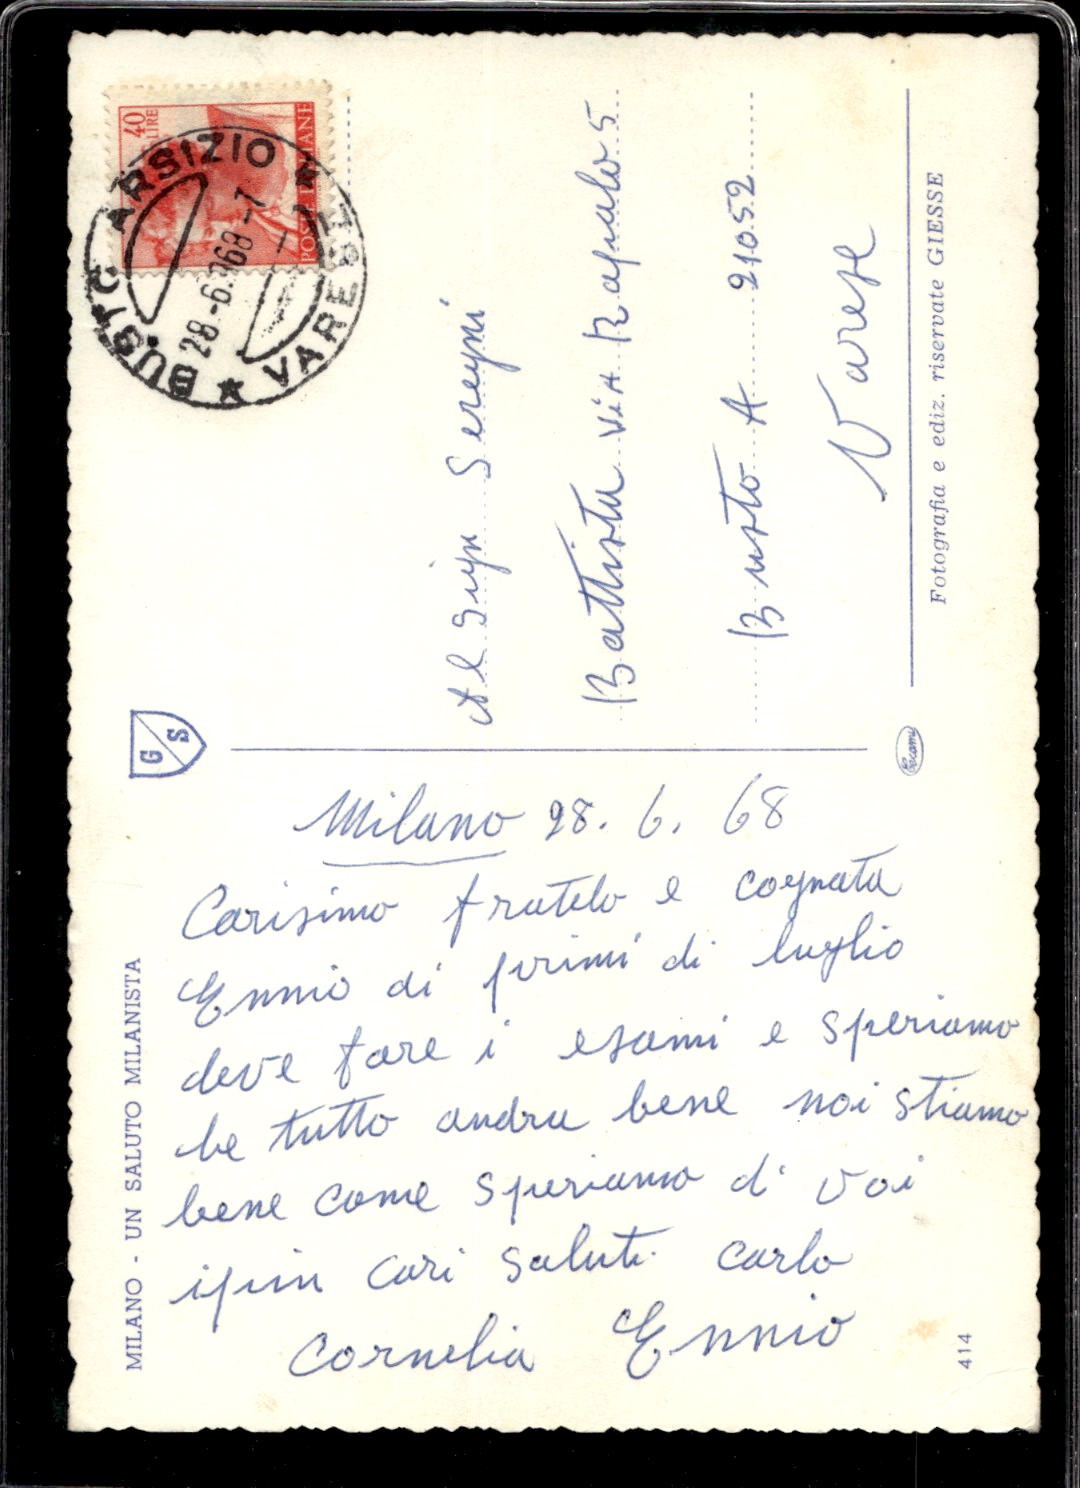 MILANO - UN SALUTO MILANISTA
Milano 28. 6. 68
Carisimo fratelo e cognata
Ennio di primi di luglio
deve fare i esami e speriamo
he tutto andra bene noi stiamo
bene come speriamo di voi
ipiu cari saluti carlo
Cornelia Ennio
414
G S
40 LIRE
POSTE ITALIANE
BUSTO ARSIZIO
28-6-1968-7
VARESE
Al Sign Seregni
Battista via Rapialo 5
Busto A 21052
Varese
Fotografia e ediz. riservate GIESSE